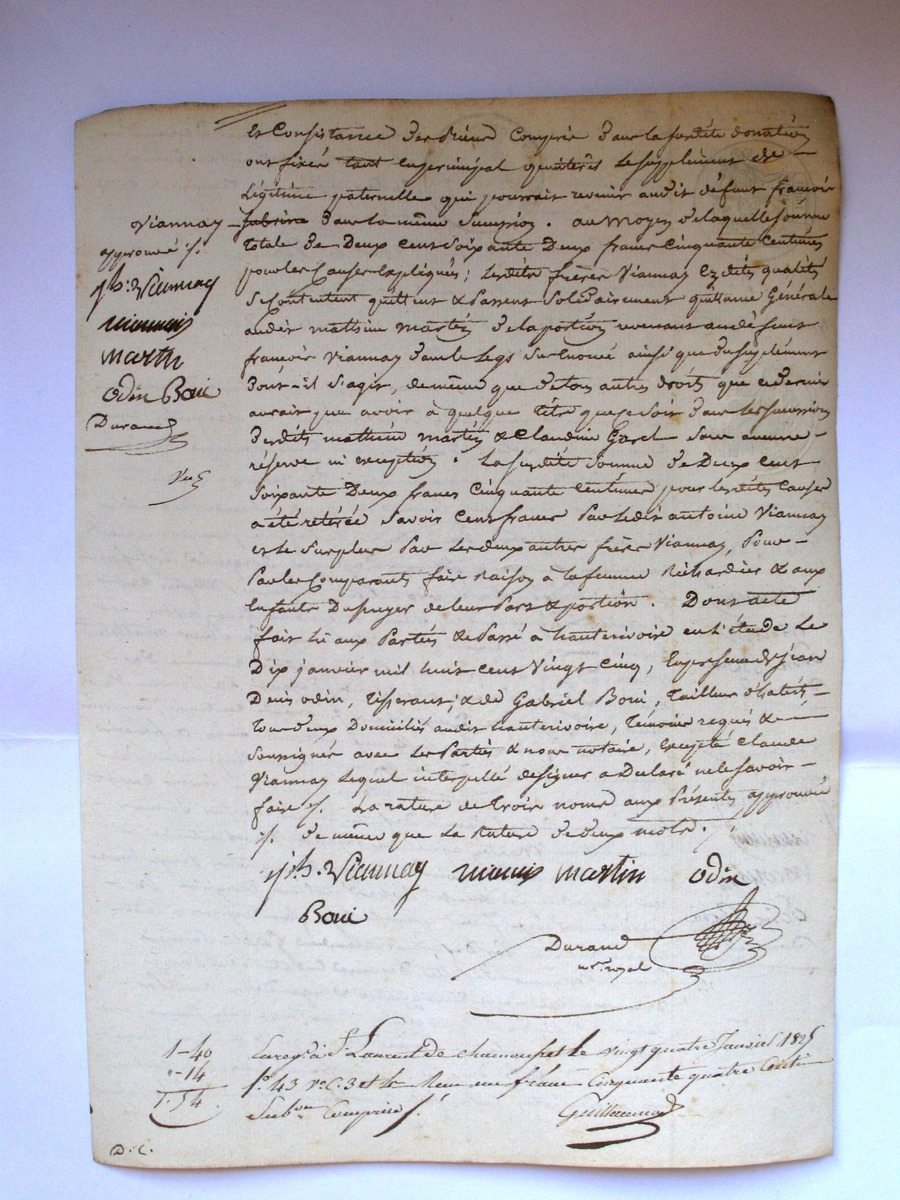 et Consistance des Biens Comprise dans la susdite donation
ont fixée tant en principal qu'intérêts le supplément de
Légitime paternelle qui pourrait revenir audit défunt françois
Viannay
fabrine dans la même succession. au Moyen de laquelle somme
approuvé /.
totale de Deux cent soixante Deux francs Cinquante Centimes
jph. Viannay
pour les Causes Expliquées; lesdits frères Viannay Ezdites qualités
se Contentent quittent & Passent Solidairement quittance Générale
audit mathieu martin de la portion revenant au défunt
martin
françois Viannay dans le Legs Sus énoncé ainsi que du suplément
odin Boui
dont-il s'agit, de même que de tous autres droits que ce dernier
Durand
aurait pu avoir à quelque titre que ce soit dans les successions
desdits mathieu martin & Claudine Gorel sans aucune
réserve ni exception. La susdite somme de Deux cent
soixante Deux francs Cinquante Centimes pour lesdites Causes
a été retirée Savoir Cent francs Par ledit antoine Viannay
et le Surplus Par les deux autres frères Viannay, Pour
Par les Comparants faire raison à la femme Richardier & aux
Enfants Dupuyer de leur Part & portion. Dont acte
fait lu aux Parties & Passé à hauterivoire en l'étude Le
Dix janvier mil huit cent Vingt Cinq, En présence de Jean
Denis odin, tisserant, & de Gabriel Boui, tailleur d'habits,
tous deux Domiciliés audit hauterivoire, témoins requis &
soussignés avec les Parties & nous notaire, excepté Claude
Viannay Lequel interpellé de signer a Déclaré ne le savoir
faire /. La rature de trois noms aux Présentes approuvée
/. de même que La Rature de deux mots. /
jph. Viannay martin odin
Boui
Durand
nre. royal
1-40 Enregé. à St Laurent de chamousset le vingt quatre Janvier 1825
"-14 fo. 43 vo. C. 3 et 4 Reçu un franc Cinquante quatre Centi
1.54 Subon Comprise /.
D. C.